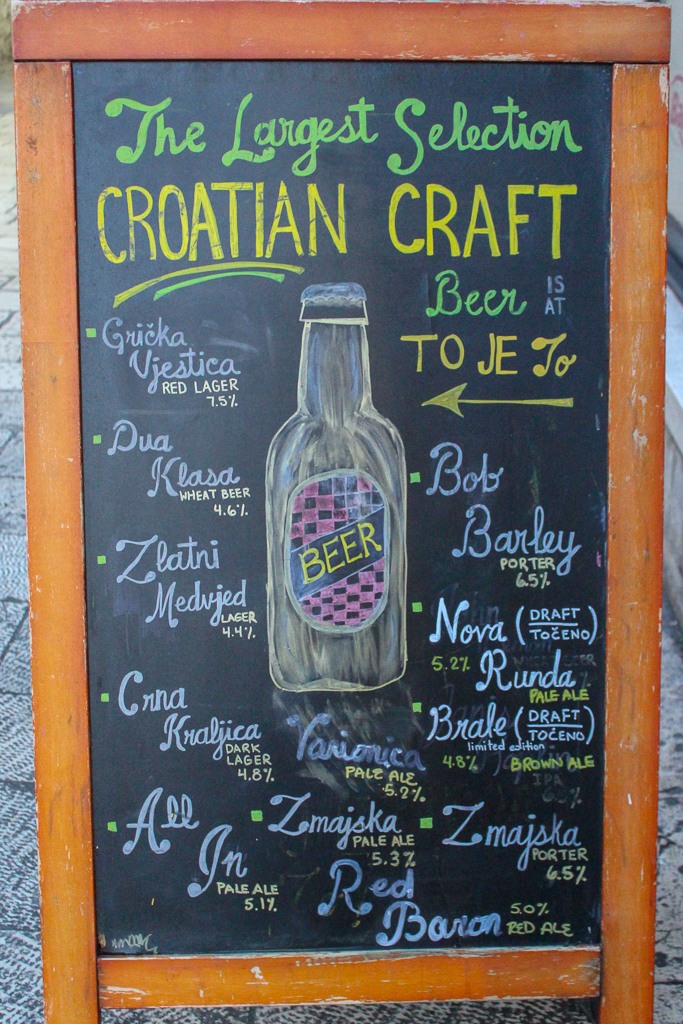 The Largest Selection
CROATIAN CRAFT
Beer IS AT
TO JE To
Grička
Vještica
RED LAGER
7.5%
Dua
Klasa
WHEAT BEER
4.6%
Zlatni
Medvjed
LAGER
4.4%
Crna
Kraljica
DARK
LAGER
4.8%
All
In
PALE ALE
5.1%
BEER
Varionica
PALE ALE
5.2%
Zmajska
PALE ALE
5.3%
Red
Baron
5.0%
RED ALE
Bob
Barley
PORTER
6.5%
Nova (DRAFT
TOČENO)
5.2% Runda
PALE ALE
Brale (DRAFT
TOČENO)
limited edition
4.8% BROWN ALE
IPA
Zmajska
PORTER
6.5%